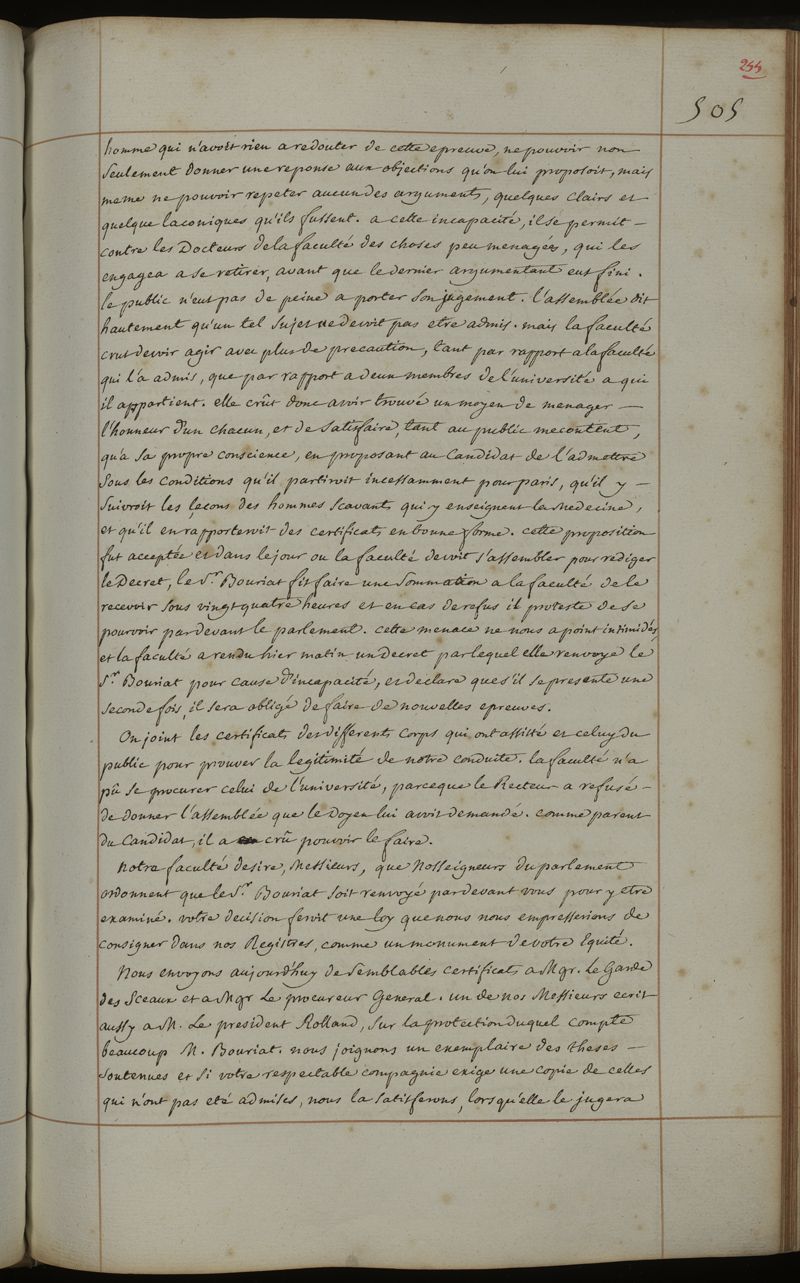 255
505
homme qui n'avoit rien a redouter de cette epreuve, ne pouvoir non
seulement donner une reponse aux objections qu'on lui proposoit, mais
meme ne pouvoir repeter aucun des arguments, quelques clairs et
quelque laconiques qu'ils fussent. a cette incapacité, il se permit —
contre les Docteurs de la faculté des choses peu menagées, qui les
engagea a se retirer, avant que le dernier argumentant eut fini.
le public n'eut pas de peine a porter son jugement. l'assemblée dit
hautement qu'un tel sujet ne devoit pas etre admis. mais la faculté
crut devoir agir avec plus de precaution, tant par rapport a la faculté
qui l'a admis, que par rapport a deux membres de l'université a qui
il appartient. elle crût donc avoir trouvé un moyen de menager —
l'honneur d'un chacun, et de satisfaire, tant au public mecontent,
qu'a sa propre conscience, en proposant au Candidat de l'admettre
sous les conditions qu'il partiroit incessamment pour paris, qu'il y —
suivroit les leçons des hommes scavants qui y enseignent la Medecine,
et qu'il en rapporteroit des certificats en bonne forme. cette proposition
fut acceptée et dans le jour ou la faculté devoit s'assembler pour rediger
le Decret, le Sr. Bouriat fit faire une sommation a la faculté de le
recevoir sous vingt quatre heures et en cas de refus il proteste de se
pourvoir pardevant le parlement. cette menace ne nous a point intimidés,
et la faculté a rendu hier matin un Decret par lequel elle renvoye le
Sr. Bouriat pour cause d'incapacité, et declare que s'il se presente une
seconde fois, il sera obligé de faire de nouvelles epreuves.
On joint les certificats des differents corps qui ont assisté et celuy du
public pour prouver la legitimité de notre conduite. la faculté n'a
pû se procurer celui de l'université, parceque le Recteur a refusé —
de donner l'assemblée que le Doyen lui avoit demandé. comme parent
du Candidat, il a crû pouvoir le faire.
Notre faculté desire, Messieurs, que Nosseigneurs du parlement
ordonnent que le Sr. Bouriat soit renvoyé pardevant vous pour y etre
examiné. votre decision seroit une loy que nous nous empresserions de
consigner dans nos Registres, comme un monument de votre Equité.
Nous envoyons aujourd'huy de semblables certificats a Mgr. Le Garde
des Sceaux et a Mgr Le procureur General. un de nos Messieurs ecrit
aussy a M. Le president Rolland, sur la protection duquel compte
beaucoup M. Bouriat. nous joignons un exemplaire des theses —
soutenues et si votre respectable compagnie exige une copie de celles
qui n'ont pas eté admises, nous la satisferons, lorsqu'elle le jugera